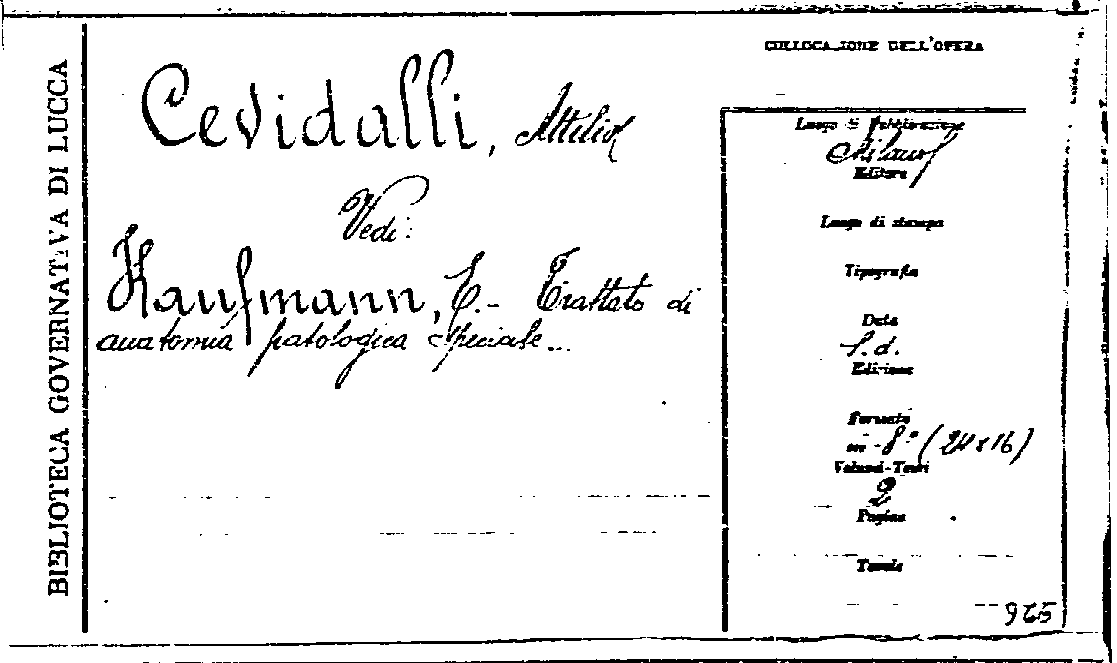 BIBLIOTECA GOVERNATIVA DI LUCCA
Cevidalli, Attilio
Vedi:
Kaufmann, E. - Trattato di
anatomia patologica speciale...
COLLOCAZIONE DELL'OPERA
Luogo di Pubblicazione
Milano
Editore
Luogo di stampa
Tipografia
Data
s.d.
Edizione
Formato
in-8° (24x16)
Volumi-Tomi
2
Pagine
Tavole
965